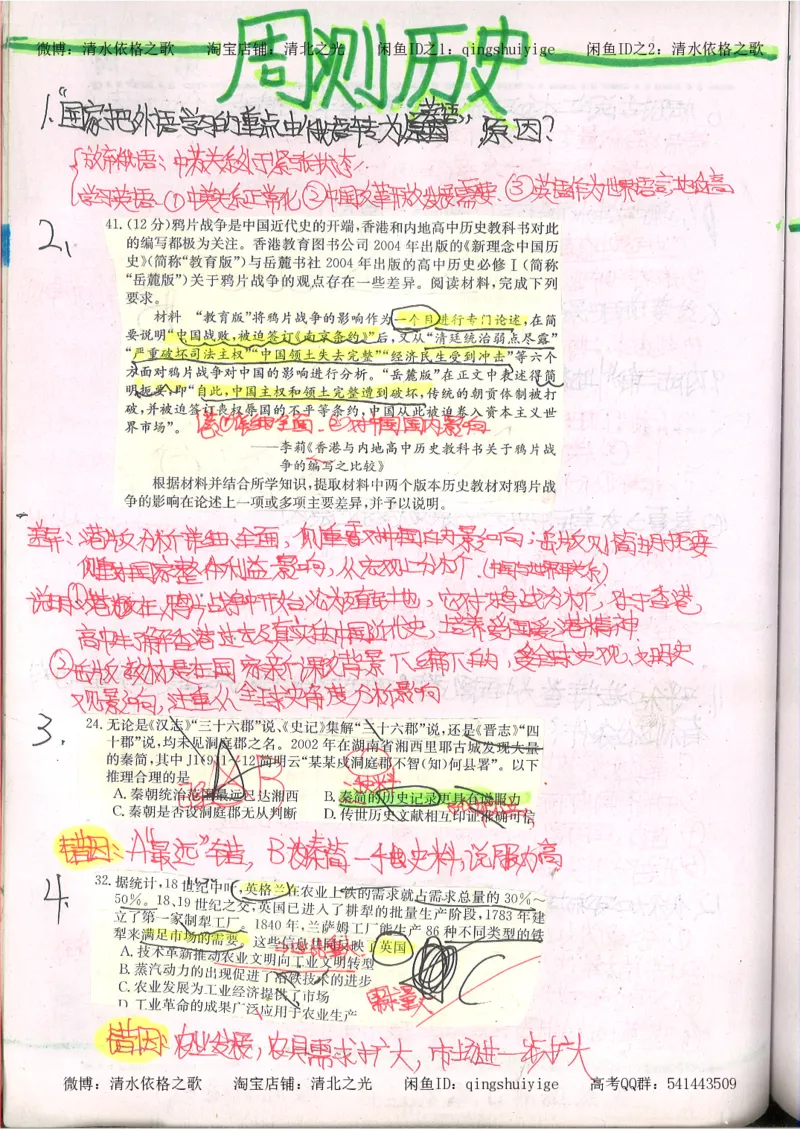 微博：清水依格之歌 淘宝店铺：清北之光 闲鱼ID之1：qingshuiyige 闲鱼ID之2：清水依格之歌
周测历史
1."国家把外语学习的重点由俄语转为英语"，原因？
放弃俄语：中苏关系处于紧张状态
学习英语：①中美关系正常化 ②中国改革开放发展需要 ③英语作为世界语言地位高
2、
41.(12分)鸦片战争是中国近代史的开端，香港和内地高中历史教科书对此
的编写都极为关注。香港教育图书公司2004年出版的《新理念中国历
史》(简称"教育版")与岳麓书社2004年出版的高中历史必修Ⅰ(简称
"岳麓版")关于鸦片战争的观点存在一些差异。阅读材料，完成下列
要求。
材料 "教育版"将鸦片战争的影响作为一个目进行专门论述，在简
要说明"中国战败，被迫签订《南京条约》"后，又从"清廷统治弱点尽露"
"严重破坏司法主权""中国领土失去完整""经济民生受到冲击"等六个
方面对鸦片战争对中国的影响进行分析。"岳麓版"在正文中表述得简
明扼要，即"自此，中国主权和领土完整遭到破坏，传统的朝贡体制被打
破，并被迫签订丧权辱国的不平等条约，中国从此被迫卷入资本主义世
界市场"。
——李莉《香港与内地高中历史教科书关于鸦片战
争的编写之比较》
根据材料并结合所学知识，提取材料中两个版本历史教材对鸦片战
争的影响在论述上一项或多项主要差异，并予以说明。
差异：港版分析详细、全面，侧重看对中国国内影响；岳版则简明扼要
侧重对国家整体利益影响，从宏观上分析．(中国与世界联系)
说明：①港版在鸦片战争中开始沦为殖民地，它对鸦战分析，利于香港
高中生了解香港过去及真实的中国近代史，培养爱国爱港精神
②岳版教材是在国家新课改背景下编写的，受全球史观，文明史
观影响，注重从全球史角度分析影响
3．
24.无论是《汉志》"三十六郡"说、《史记》集解"三十六郡"说，还是《晋志》"四
十郡"说，均未见洞庭郡之名。2002年在湖南省湘西里耶古城发现大量
的秦简，其中J1(9)1－12简明云"某某戍洞庭郡不智(知)何县署"。以下
推理合理的是
A.秦朝统治范围最远已达湘西 B.秦简的历史记录更具有说服力
C.秦朝是否设洞庭郡无从判断 D.传世历史文献相互印证准确可信
错因：A"最远"错，B为秦简一手史料，说服力高
4．
32.据统计，18世纪中叶，英格兰在农业上铁的需求就占需求总量的30%～
50%。18、19世纪之交，英国已进入了耕犁的批量生产阶段，1783年建
立了第一家制犁工厂。1840年，兰萨姆工厂能生产86种不同类型的铁
犁来满足市场的需要。这些信息共同反映了英国
A.技术革新推动农业文明向工业文明转型
B.蒸汽动力的出现促进了冶铁技术的进步
C.农业发展为工业经济提供了市场
D.工业革命的成果广泛应用于农业生产
C
错因：农业发展，农具需求扩大，市场进一步扩大
微博：清水依格之歌 淘宝店铺：清北之光 闲鱼ID：qingshuiyige 高考QQ群：541443509